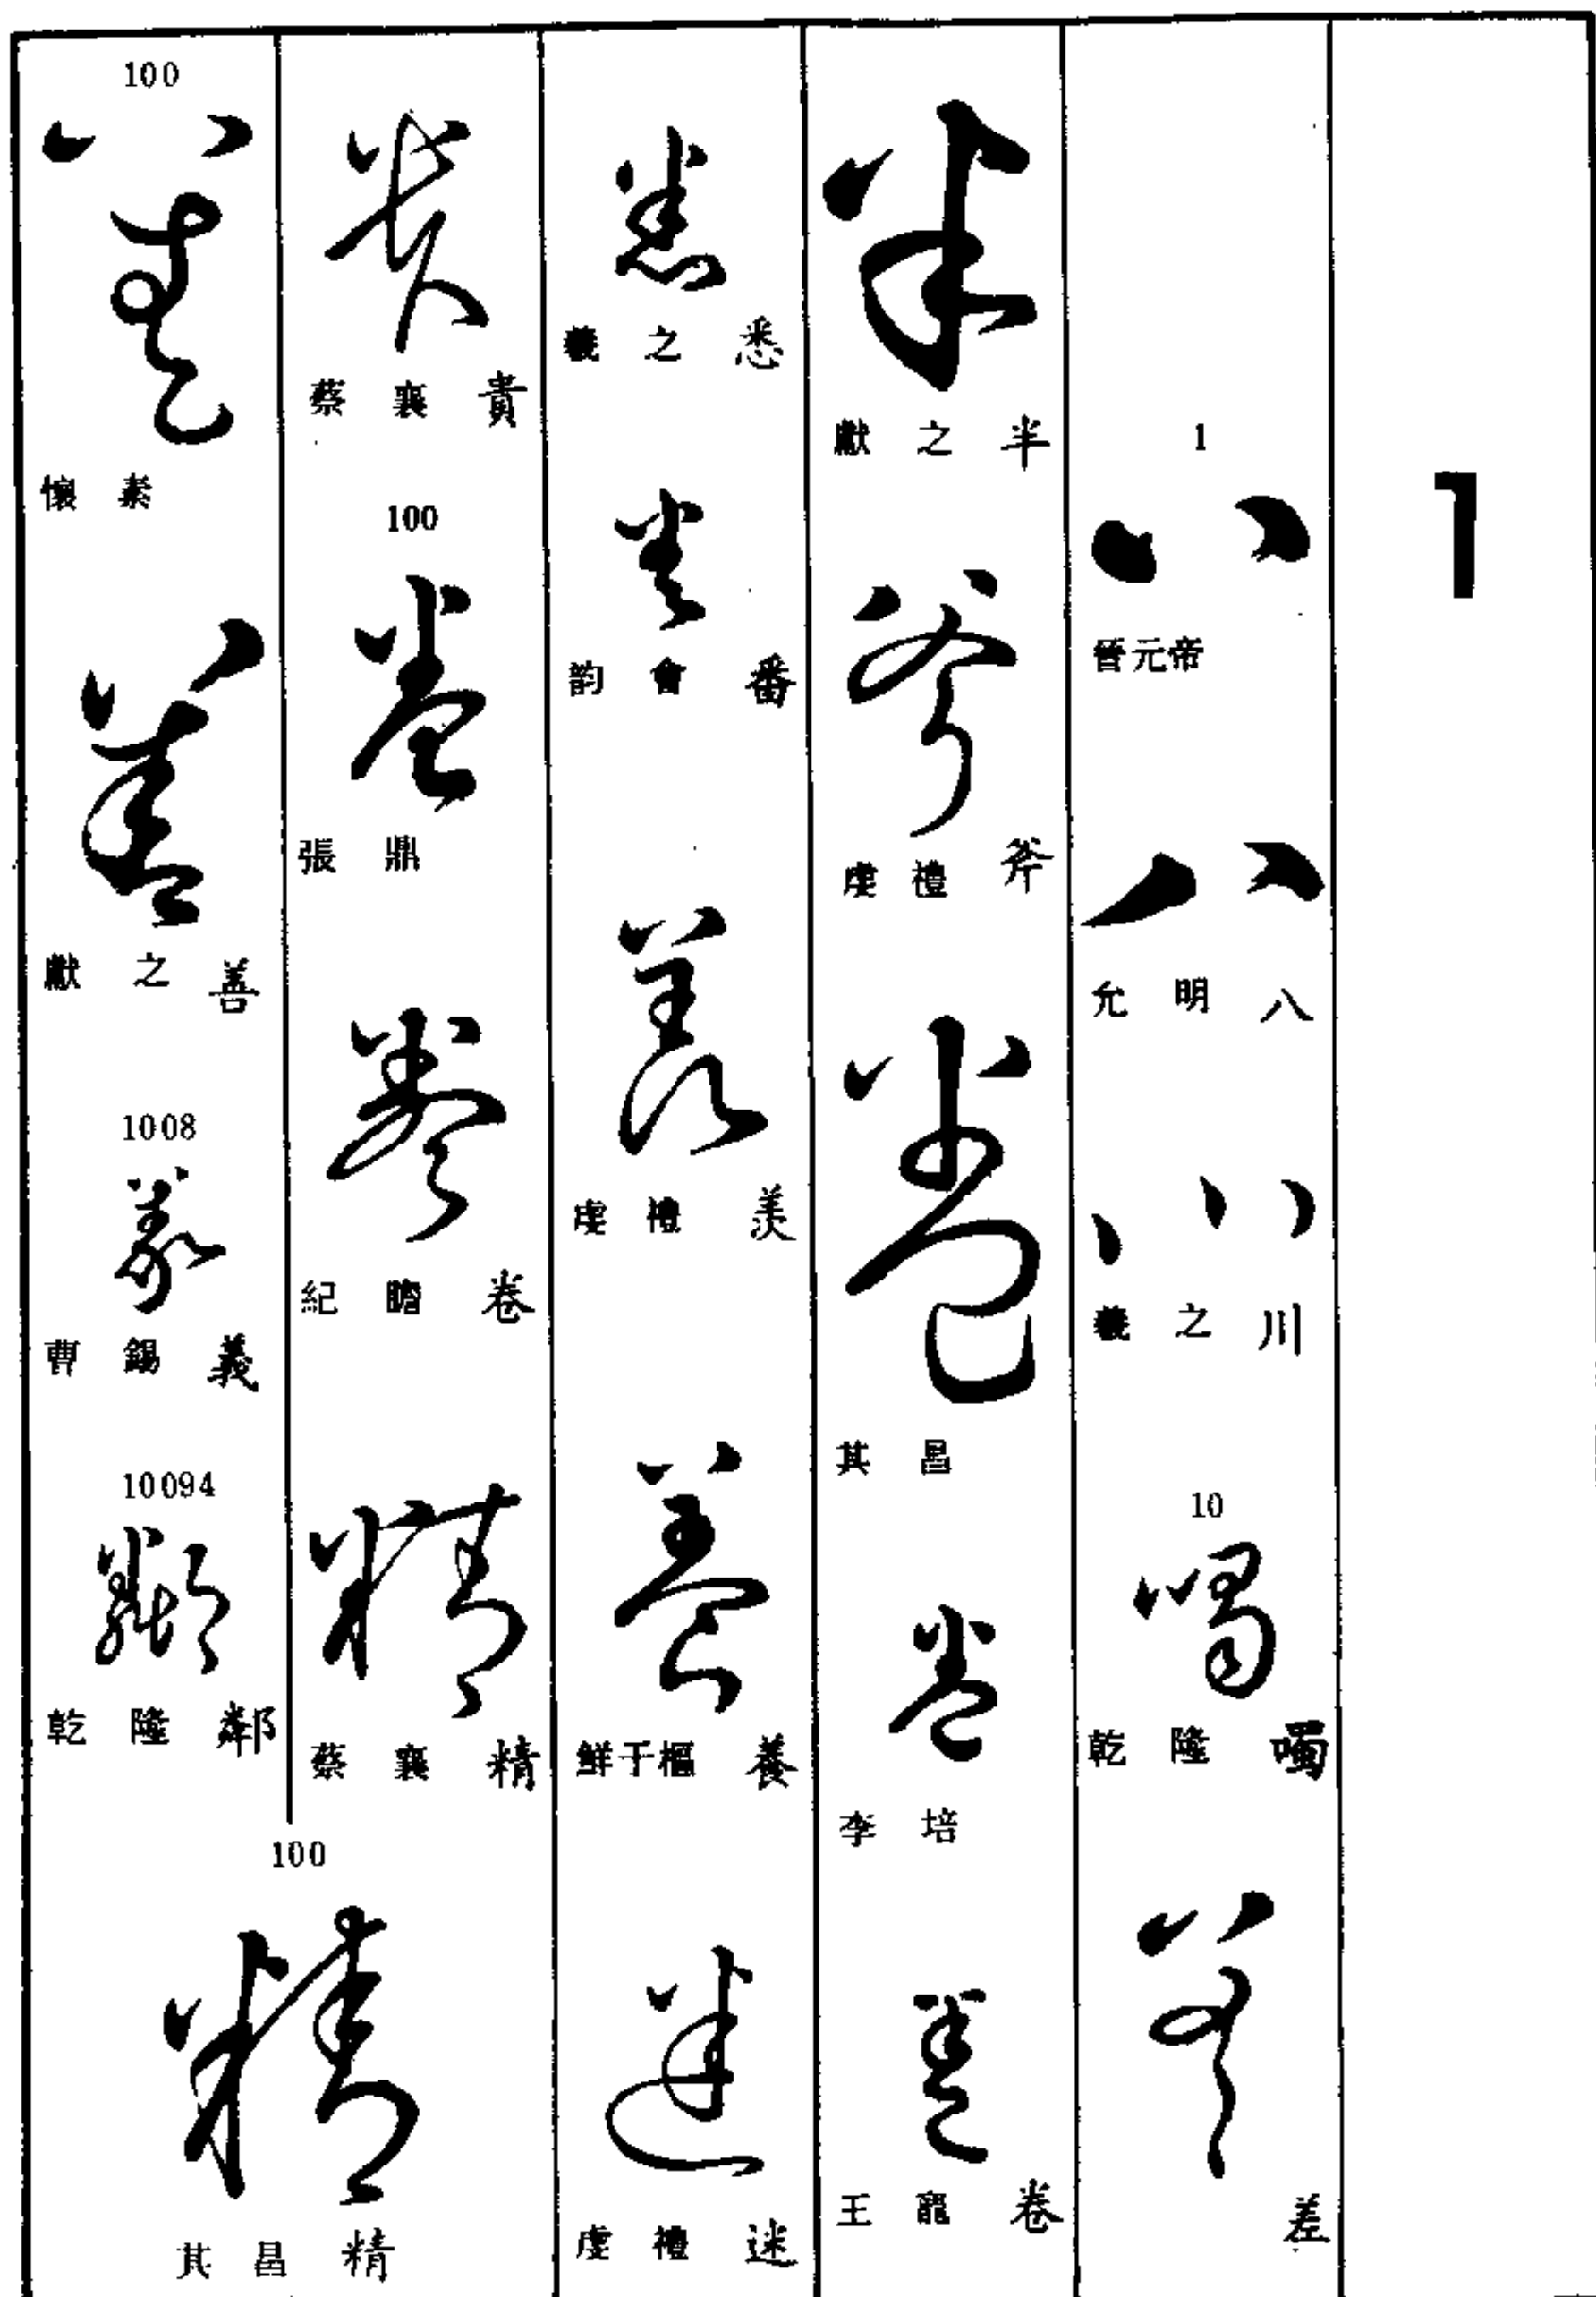 1
1
晉元帝
允明 八
羲之 川
10
乾隆 噣
差
獻之 半
虔禮 斧
其昌
李培
王寵 卷
羲之 悉
韵會 番
虔禮 羨
鮮于樞 養
虔禮 迷
蔡襄 貴
100
張鼎
紀瞻 卷
蔡襄 精
100
懷素
獻之 善
1008
曹錫 義
10094
乾隆 鄰
100
其昌 精